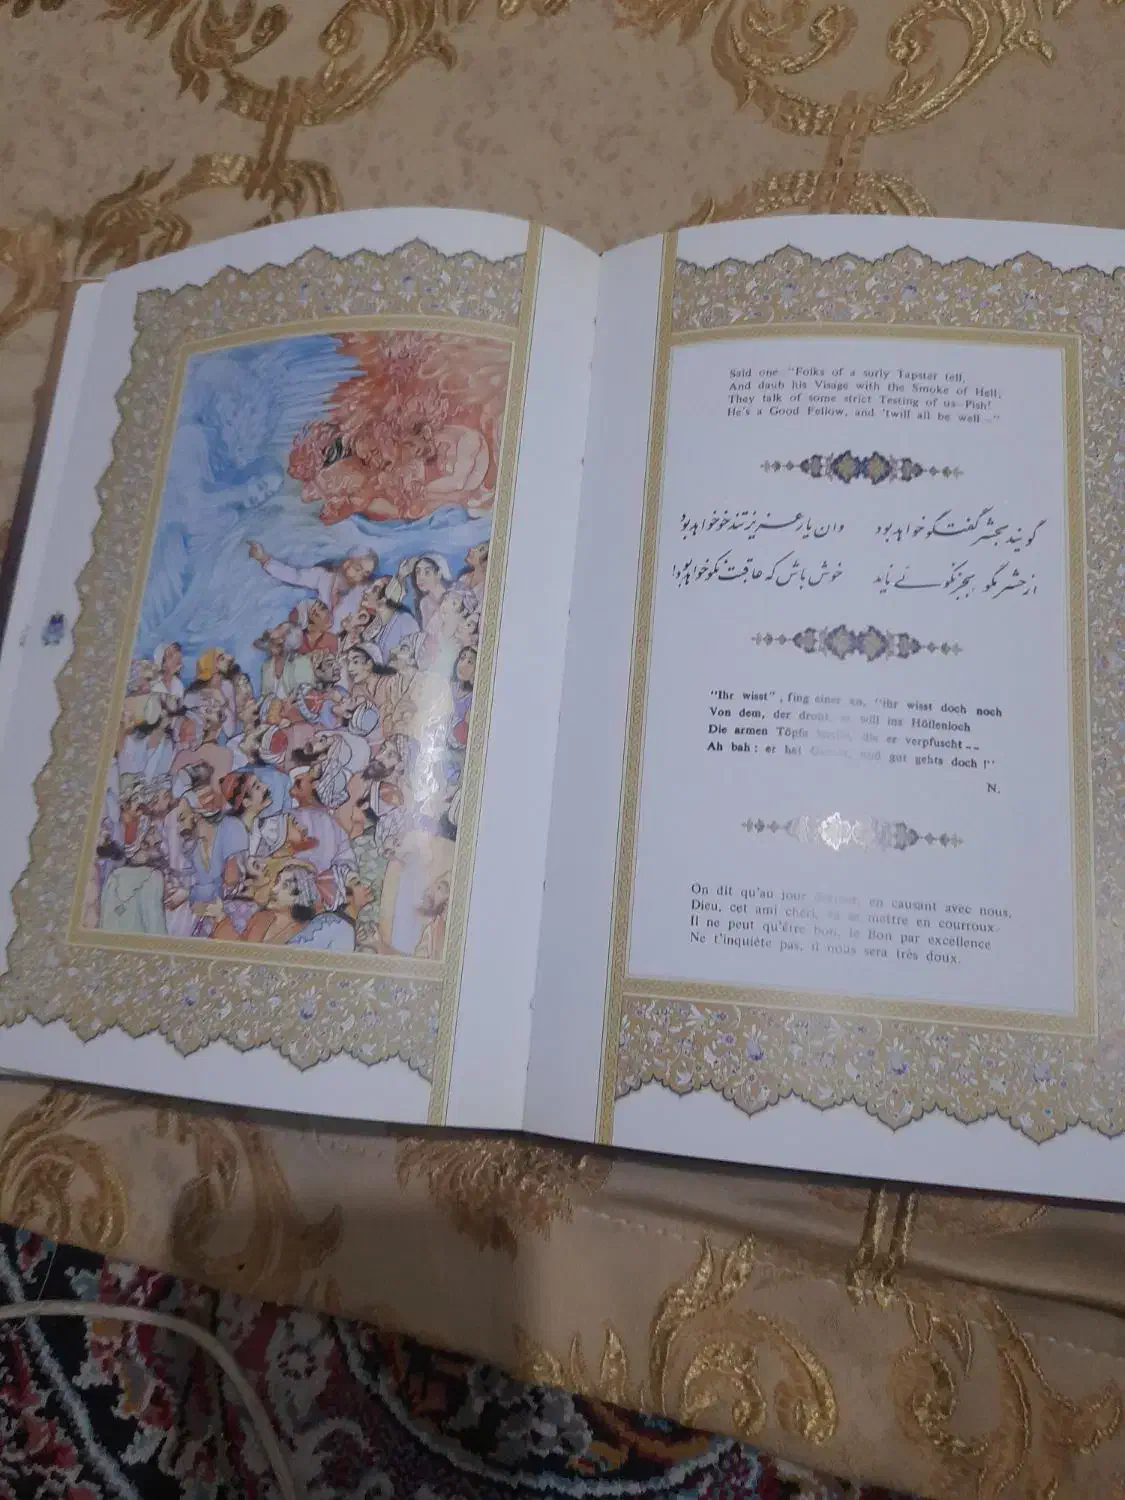 Said one "Folks of a surly Tapster tell,
And daub his Visage with the Smoke of Hell;
They talk of some strict Testing of us-Pish!
He's a Good Fellow, and 'twill all be well-"
گویند بحشر گفتگو خواهد بود وان یار عزیز تندخو خواهد بود
از خیر محض بجز نکوئی ناید خوش باش که عاقبت نکو خواهد بود
"Ihr wisst", fing einer an, "ihr wisst doch noch
Von dem, der droht, er will ins Höllenloch
Die armen Töpfe die er verpfuscht--
Ah bah: er hat und gut gehts doch!"
N.
On dit qu'au jour dernier, en causant avec nous,
Dieu, cet ami chéri, va se mettre en courroux.
Il ne peut qu'être bon, le Bon par excellence
Ne t'inquiète pas, il nous sera très doux.